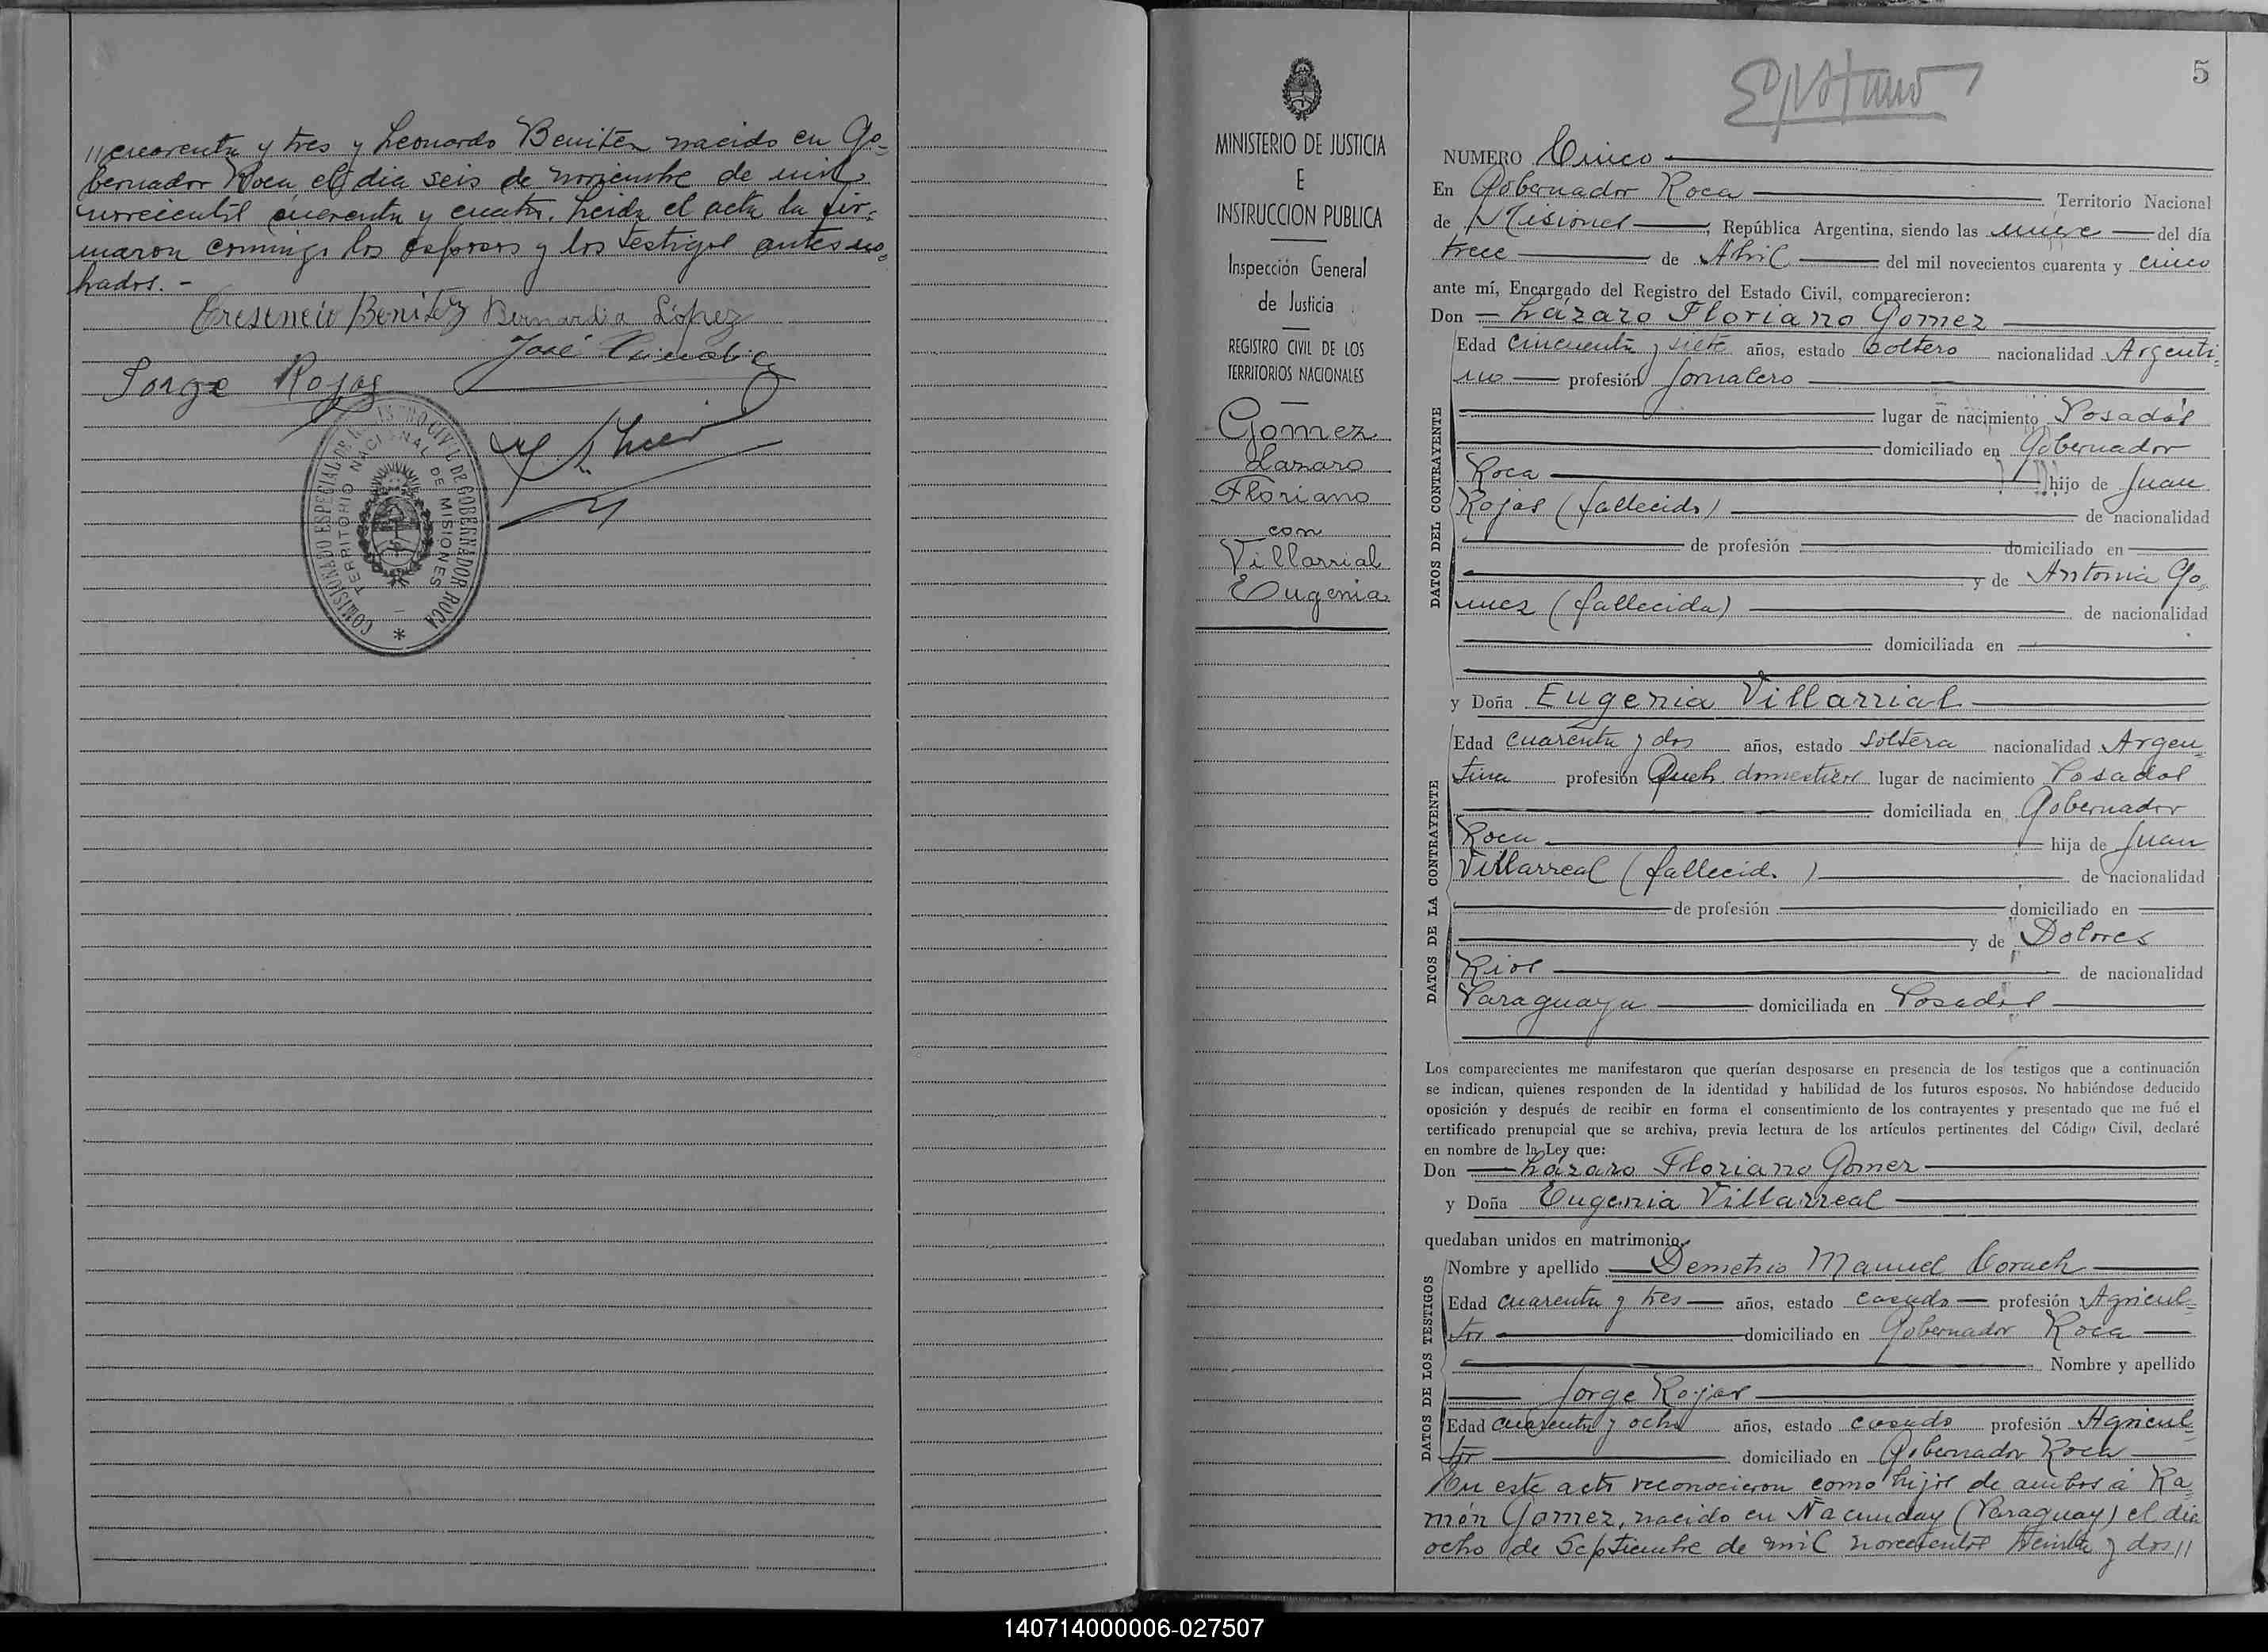 //cuarenta y tres y Leonardo Benitez nacido en Go=
bernador Roca el dia seis de noviembre de mil
novecientos cuarenta y cuatro. Leida el acta la fir=
maron conmigo los esposos y los testigos antes no=
brados. -
Cresencio Benitez Bernardia López
José
Jorge Rojas
COMISIONADO ESPECIAL DEL REGISTRO CIVIL DE GOBERNADOR ROCA
TERRITORIO NACIONAL DE MISIONES
*
MINISTERIO DE JUSTICIA
E
INSTRUCCION PUBLICA
Inspección General
de Justicia
REGISTRO CIVIL DE LOS
TERRITORIOS NACIONALES
Gomez
Lazaro
Floriano
con
Villarrial
Eugenia
5
NUMERO Cinco
En Gobernador Roca Territorio Nacional
de Misiones, República Argentina, siendo las nueve del día
trece de Abril del mil novecientos cuarenta y cinco
ante mí, Encargado del Registro del Estado Civil, comparecieron:
Don Lázaro Floriano Gomez
DATOS DEL CONTRAYENTE
Edad cincuenta y siete años, estado soltero nacionalidad Argenti=
no profesión Jornalero
lugar de nacimiento Posadas
domiciliado en Gobernador
Roca hijo de Juan
Rojas (fallecido) de nacionalidad
de profesión domiciliado en
y de Antonia Go=
mez (fallecida) de nacionalidad
domiciliada en
y Doña Eugenia Villarrial
DATOS DE LA CONTRAYENTE
Edad cuarenta y dos años, estado soltera nacionalidad Argen=
tina profesión Queh. domesticos lugar de nacimiento Posadas
domiciliada en Gobernador
Roca hija de Juan
Villarreal (fallecido) de nacionalidad
de profesión domiciliado en
y de Dolores
Rios de nacionalidad
Paraguaya domiciliada en Posadas
Los comparecientes me manifestaron que querían desposarse en presencia de los testigos que a continuación
se indican, quienes responden de la identidad y habilidad de los futuros esposos. No habiéndose deducido
oposición y después de recibir en forma el consentimiento de los contrayentes y presentado que me fué el
certificado prenupcial que se archiva, previa lectura de los artículos pertinentes del Código Civil, declaré
en nombre de la Ley que:
Don Lázaro Floriano Gomez
y Doña Eugenia Villarreal
quedaban unidos en matrimonio.
DATOS DE LOS TESTIGOS
Nombre y apellido Demetrio Manuel Corach
Edad cuarenta y tres años, estado casado profesión Agricul=
tor domiciliado en Gobernador Roca
Nombre y apellido
Jorge Rojas
Edad cuarenta y ocho años, estado casado profesión Agricul=
tor domiciliado en Gobernador Roca
En este acto reconocieron como hijos de ambos á Ra=
món Gomez, nacido en Ñacunday (Paraguay) el dia
ocho de Septiembre de mil novecientos treinta y dos//
140714000006-027507